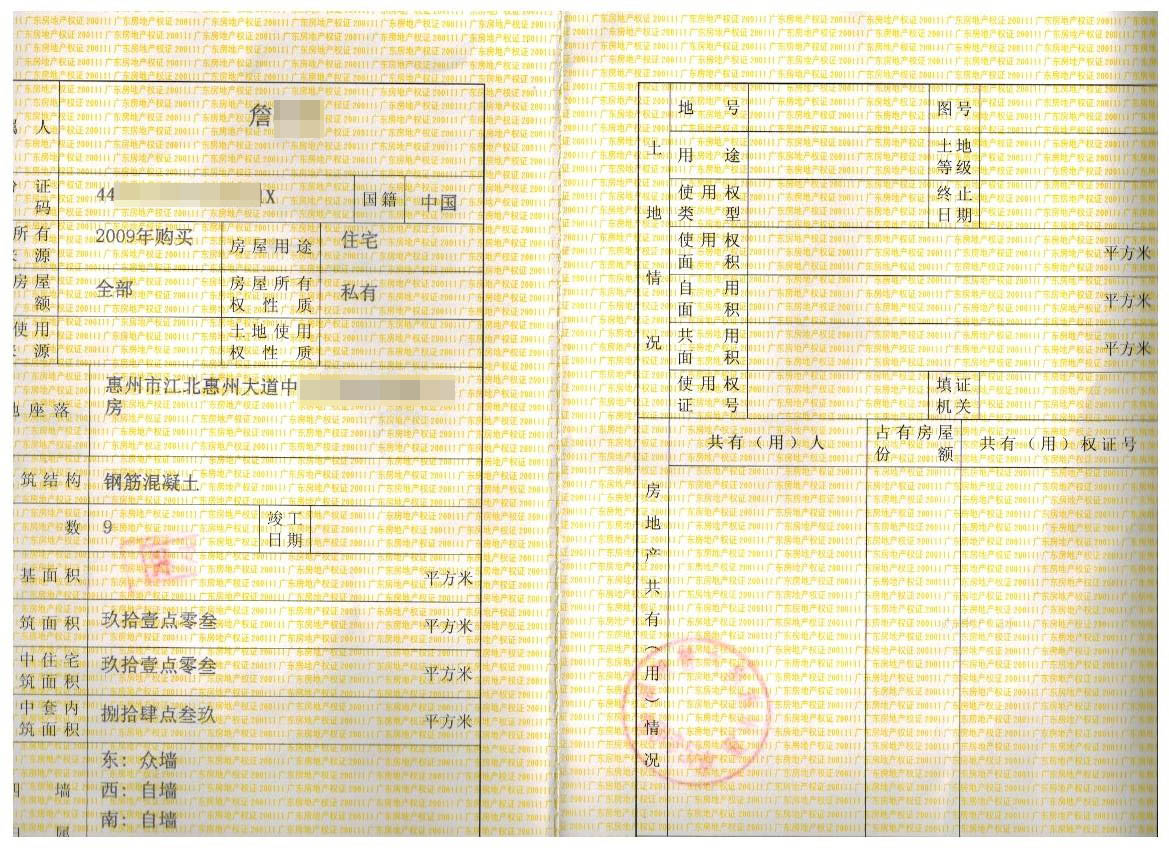 属 人
詹
份 证
码
44
1X
国籍
中国
所有
来 源
2009年购买
房屋用途
住宅
房屋
额
全部
房屋所有
权 性 质
私有
使用
来 源
土地使用
权 性 质
地座落
惠州市江北惠州大道中
房
筑结构
钢筋混凝土
数
9
竣工
日期
基面积
平方米
筑面积
玖拾壹点零叁
平方米
中住宅
筑面积
玖拾壹点零叁
平方米
中套内
筑面积
捌拾肆点叁玖
平方米
墙
东：众墙
西：自墙
南：自墙
土地情况
地 号
图号
用 途
土地
等级
使用权
类 型
终止
日期
使用权
面 积
平方米
自 用
面 积
平方米
共 用
面 积
平方米
使用权
证 号
填证
机关
房地产共有（用）情况
共有（用）人
占有房屋
份 额
共有（用）权证号
广东房地产权证200111